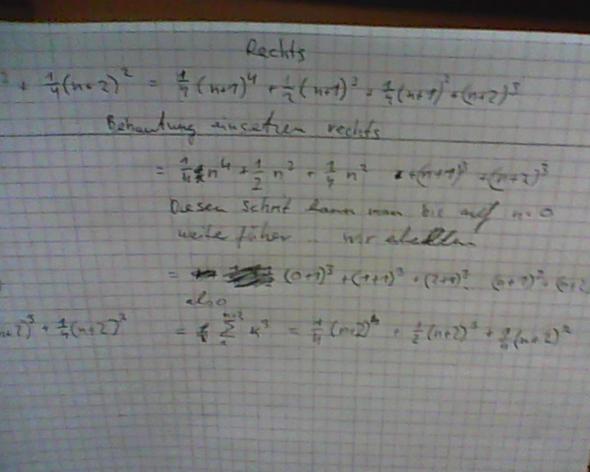 Rechts
² + 1/4(n+2)² = 1/4(n+1)⁴ + 1/2(n+1)³ + 1/4(n+1)² + (n+2)³
Behautung einsetzen rechts
= 1/4 n⁴ + 1/2 n³ + 1/4 n² + (n+1)³ + (n+2)³
Diesen Schrit kann man bis auf n=0
weite führ .. wir
= (0+1)³ + (1+1)³ + (2+1)³ (n+1)³ + (n+2
also
n+2)³ + 1/4(n+2)² = Σ k³ = 1/4(n+2)⁴ + 1/2(n+2)³ + 1/4(n+2)²